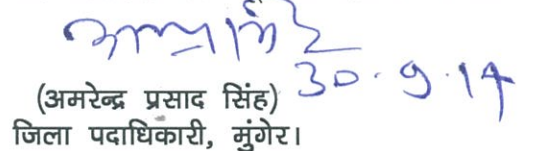 30.9.14
(अमरेन्द्र प्रसाद सिंह)
जिला पदाधिकारी, मुंगेर।